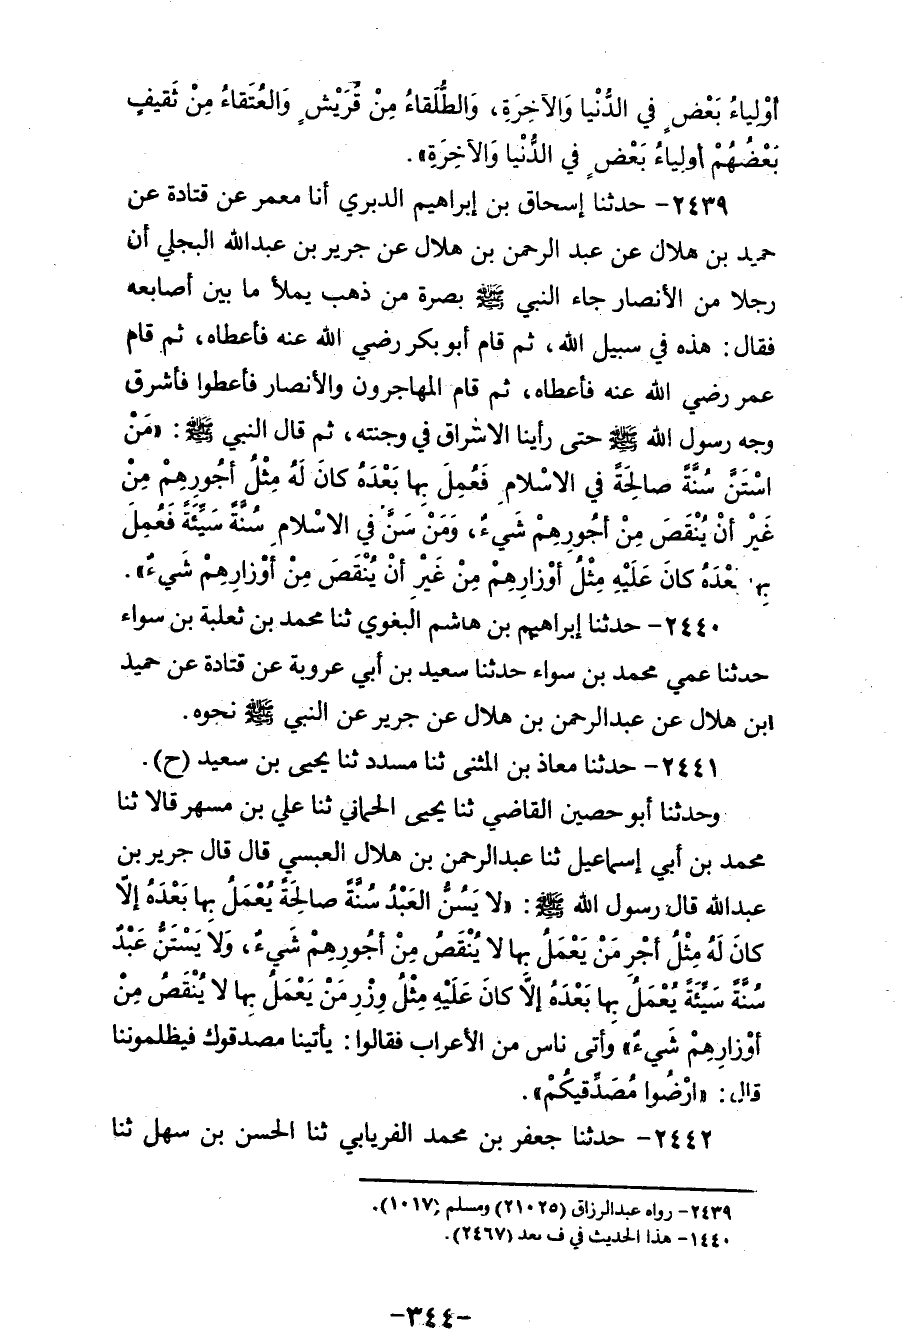 أَوْلِياءُ بَعْضٍ في الدُّنْيا وَالآخِرَةِ، وَالطُّلَقاءُ مِنْ قُرَيْشٍ وَالعُتَقاءُ مِنْ ثَقيفٍ
بَعْضُهُمْ أولِياءُ بَعْضٍ في الدُّنْيا وَالآخِرَةِ».
٢٤٣٩- حدثنا إسحاق بن إبراهيم الدبري أنا معمر عن قتادة عن
حميد بن هلال عن عبد الرحمن بن هلال عن جرير بن عبدالله البجلي أن
رجلا من الأنصار جاء النبي ﷺ بصرة من ذهب يملأ ما بين أصابعه
فقال: هذه في سبيل الله، ثم قام أبو بكر رضي الله عنه فأعطاه، ثم قام
عمر رضي الله عنه فأعطاه، ثم قام المهاجرون والأنصار فأعطوا فأشرق
وجه رسول الله ﷺ حتى رأينا الاشراق في وجنته، ثم قال النبي ﷺ: «مَنْ
اسْتَنَّ سُنَّةً صالِحَةً في الاسْلامِ فَعُمِلَ بِها بَعْدَهُ كانَ لَهُ مِثْلُ أجُورِهِمْ مِنْ
غَيْرِ أنْ يُنْقَصَ مِنْ أجُورِهِمْ شَيءٌ، وَمَنْ سَنَّ في الاسْلامِ سُنَّةً سَيِّئَةً فَعُمِلَ
بِها بَعْدَهُ كانَ عَلَيْهِ مِثْلُ أوْزارِهِمْ مِنْ غَيْرِ أنْ يُنْقَصَ مِنْ أوْزارِهِمْ شَيءٌ».
٢٤٤٠- حدثنا إبراهيم بن هاشم البغوي ثنا محمد بن ثعلبة بن سواء
حدثنا عمي محمد بن سواء حدثنا سعيد بن أبي عروبة عن قتادة عن حميد
ابن هلال عن عبدالرحمن بن هلال عن جرير عن النبي ﷺ نحوه.
٢٤٤١- حدثنا معاذ بن المثنى ثنا مسدد ثنا يحيى بن سعيد (ح).
وحدثنا أبو حصين القاضي ثنا يحيى الحماني ثنا علي بن مسهر قالا ثنا
محمد بن أبي إسماعيل ثنا عبدالرحمن بن هلال العبسي قال قال جرير بن
عبدالله قال رسول الله ﷺ: «لا يَسُنُّ العَبْدُ سُنَّةً صالِحَةً يُعْمَلُ بِها بَعْدَهُ إلّا
كانَ لَهُ مِثْلُ أجْرِ مَنْ يَعْمَلُ بِها لا يُنْقَصُ مِنْ أجُورِهِمْ شَيءٌ، وَلا يَسْتَنُّ عَبْدٌ
سُنَّةً سَيِّئَةً يُعْمَلُ بِها بَعْدَهُ إلّا كانَ عَلَيْهِ مِثْلُ وِزْرِ مَنْ يَعْمَلُ بِها لا يُنْقَصُ مِنْ
أوْزارِهِمْ شَيءٌ» وأتى ناس من الأعراب فقالوا: يأتينا مصدقوك فيظلموننا
قال: «ارْضُوا مُصَدِّقيكُمْ».
٢٤٤٢- حدثنا جعفر بن محمد الفريابي ثنا الحسن بن سهل ثنا
٢٤٣٩- رواه عبدالرزاق (٢١٠٢٥) ومسلم (١٠١٧).
١٤٤٠- هذا الحديث في ف بعد (٢٤٦٧).
-٣٤٤-